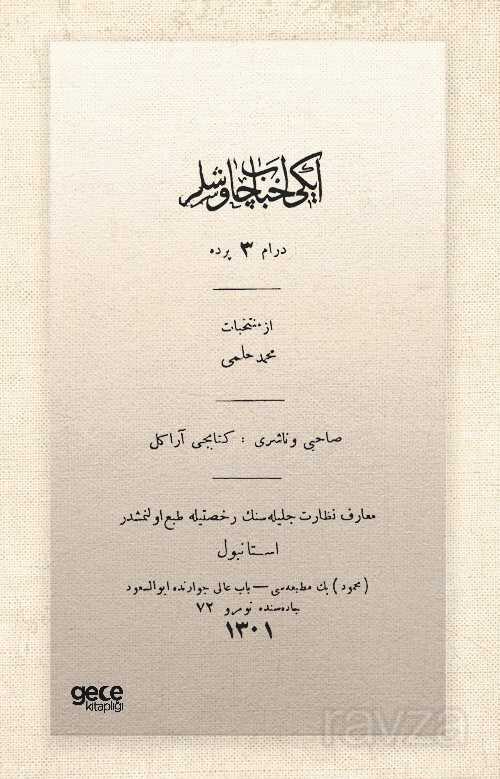 ایكی احباب چاوشلر
درام ٣ پرده
از منتخبات
محمد حلمی
صاحبی و ناشری : كتابجی آراكل
معارف نظارت جلیله‌سنك رخصتیله طبع اولنمشدر
استانبول
(محمود) بك مطبعه‌سی — باب عالی جوارنده ابوالسعود
جاده‌سنده نومرو ٧٢
١٣٠١
gece
kitaplığı
ravza